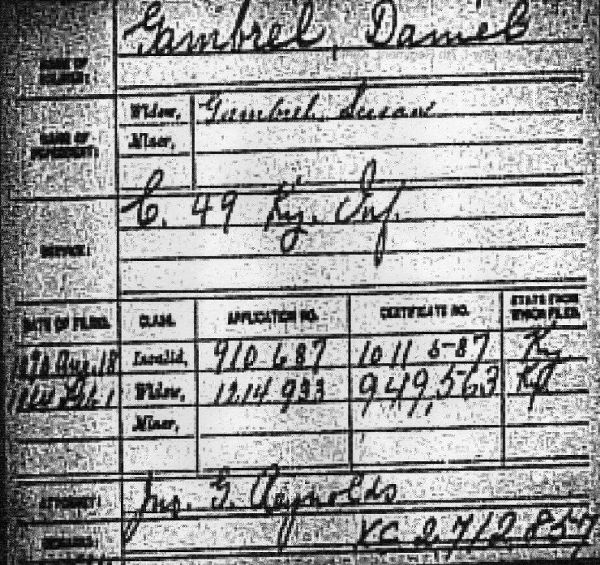 Gambrel, Daniel
NAME OF SOLDIER:
NAME OF DEPENDENT:
Widow, Gambrel, Susan
Minor,
SERVICE: C. 49 Ky. Inf.
DATE OF FILING. CLASS. APPLICATION NO. CERTIFICATE NO. STATE FROM WHICH FILED.
1890 Aug. 18 Invalid, 910 687 1011 587 Ky
Widow, 1214 933 949,563 Ky
Minor,
ATTORNEY: Jno. G. Reynolds
REMARKS: XC 2712857